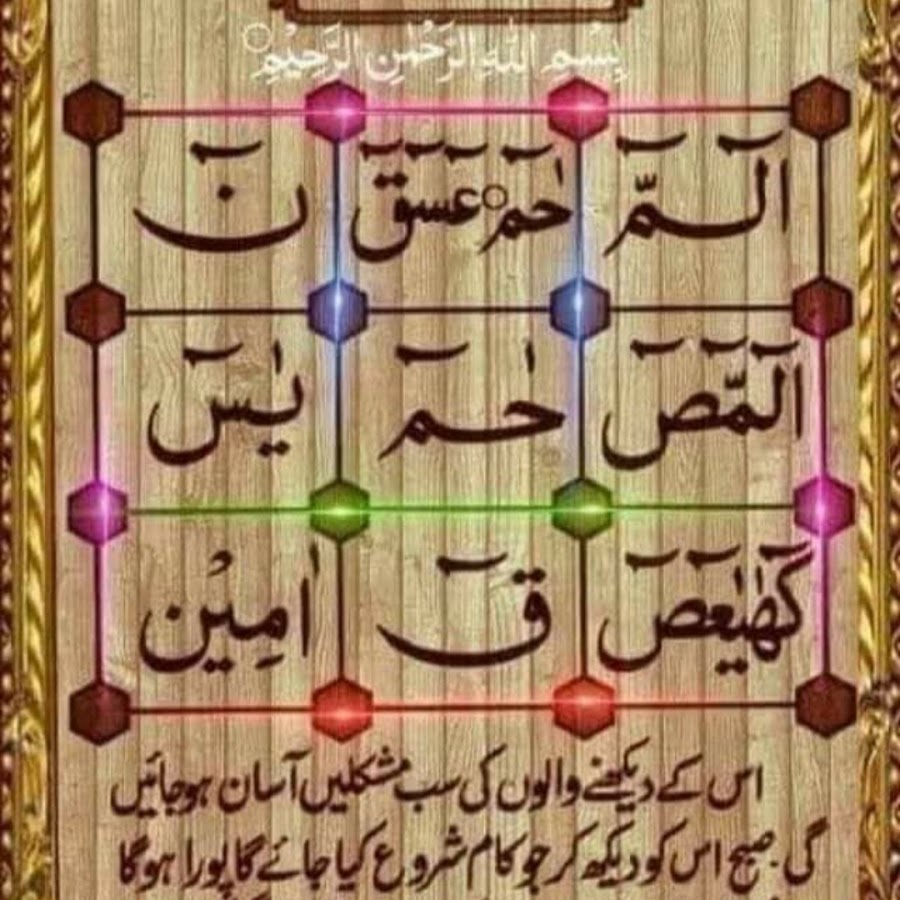 بِسْمِ اللهِ الرَّحْمٰنِ الرَّحِيْمِ○
آلٓـمّٓ حٰمٓ○عٓسٓقٓ نٓ
آلٓمّٓصٓ حٰـمٓ يٰسٓ
كٓهٰيٰعٓصٓ قٓ اٰمِيْن
اس کے دیکھنے والوں کی سب مشکلیں آسان ہوجائیں
گی۔ صبح اس کو دیکھ کر جو کام شروع کیا جائے گا پورا ہوگا